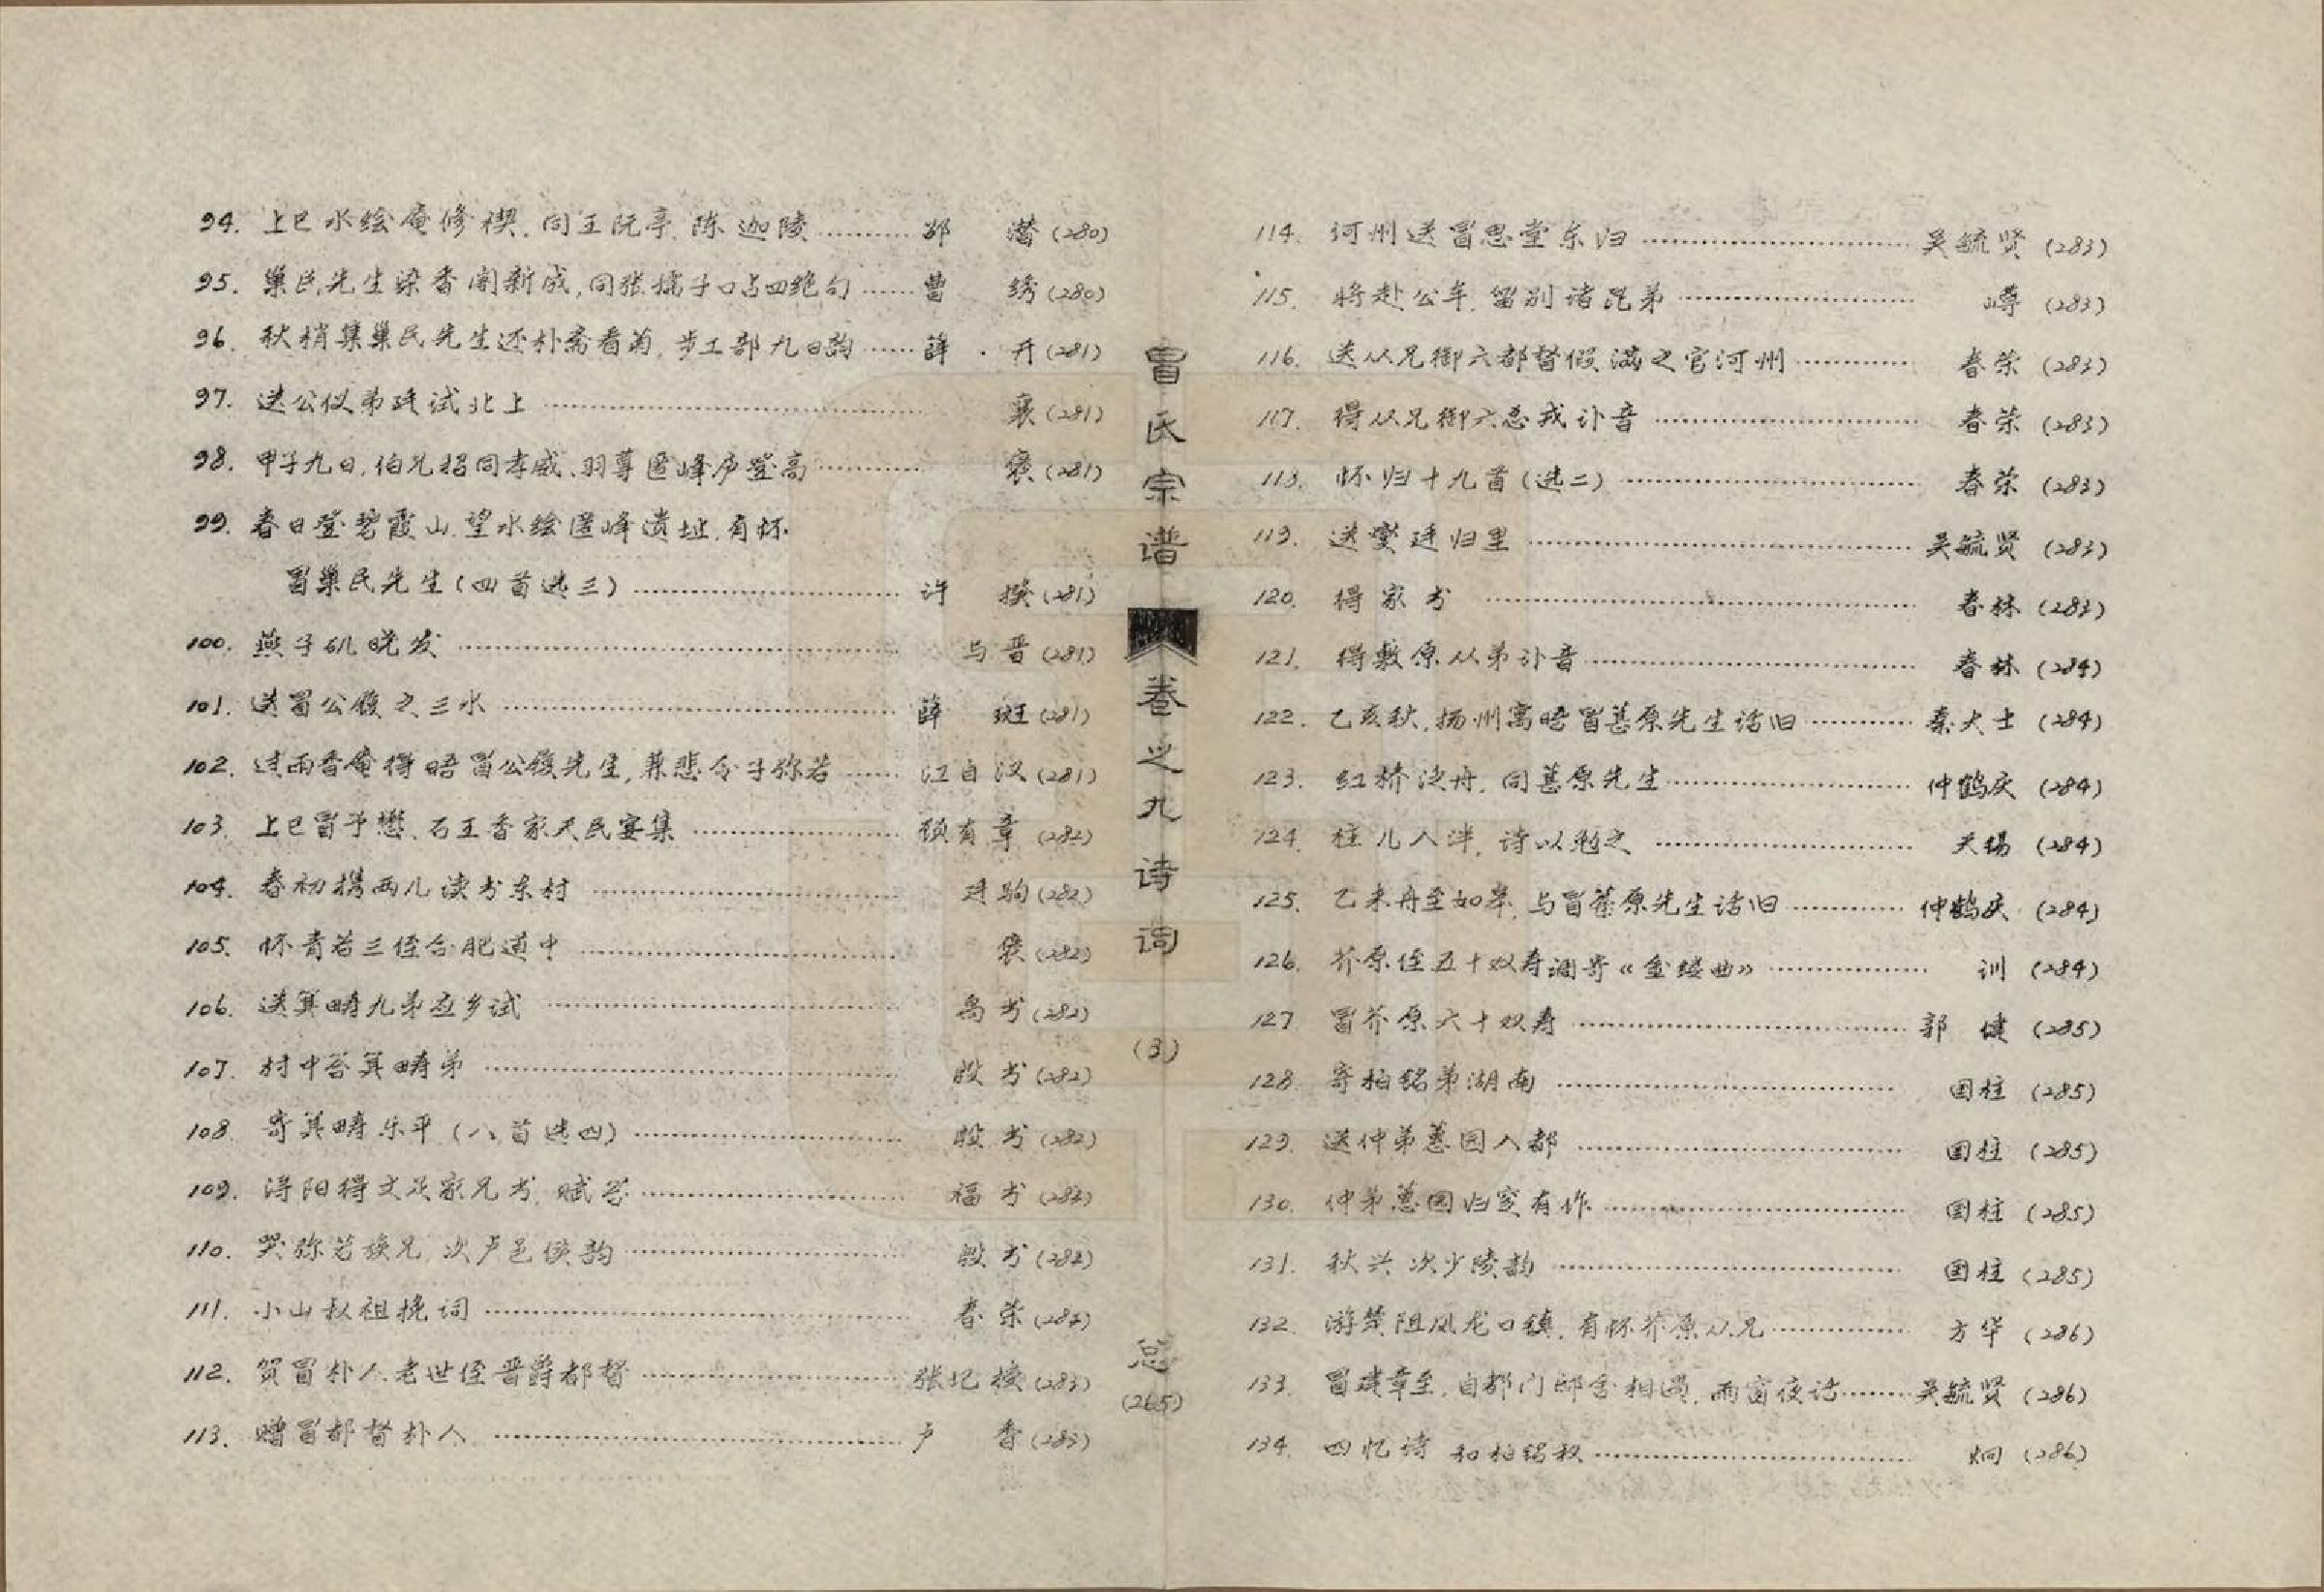 94. 上巳水绘庵修禊,同王阮亭、陈迦陵………邵　潜(280)
95. 巢民先生染香阁新成,同张孺子口占四绝句……曹　绣(280)
96. 秋梢集巢民先生还朴斋看菊,步工部九日韵……薛　开(281)
97. 送公仪弟廷试北上………………………………襄(281)
98. 甲子九日,伯兄招同孝威、羽尊匿峰庐登高………褒(281)
99. 春日登碧霞山,望水绘匿峰遗址,有怀
冒巢民先生(四首选三)……………………许　揆(281)
100. 燕子矶晚发……………………………………与晋(281)
101. 送冒公履之三水………………………………薛　斑(281)
102. 过雨香庵得晤冒公履先生,兼悲令子弥若……江自汉(281)
103. 上巳冒予懋、石王香家天民宴集………………顾有章(282)
104. 春初携两儿读书东村…………………………廷驹(282)
105. 怀青若三侄合肥道中…………………………褒(282)
106. 送箕畴九弟应乡试……………………………禹书(282)
107. 村中答箕畴弟…………………………………殷书(282)
108. 寄箕畴乐平(八首选四)………………………殷书(282)
109. 浔阳得文足家兄书,赋答………………………福书(282)
110. 哭弥若族兄,次卢邑侯韵………………………殷书(282)
111. 小山叔祖挽词…………………………………春荣(282)
112. 贺冒朴人老世侄晋爵都督……………………张圯授(283)
113. 赠冒都督朴人…………………………………卢　香(283)
冒氏宗谱
卷之九诗词
(3)
总
(265)
114. 河州送冒思堂东归……………………………吴毓贤(283)
115. 将赴公车,留别诸昆弟…………………………嶟(283)
116. 送从兄御六都督假满之官河州…………春荣(283)
117. 得从兄御六总戎讣音…………………………春荣(283)
118. 怀归十九首(选二)……………………………春荣(283)
119. 送燮廷归里……………………………………吴毓贤(283)
120. 得家书…………………………………………春林(283)
121. 得敷原从弟讣音………………………………春林(284)
122. 乙亥秋,扬州寓晤冒葚原先生话旧…………秦大士(284)
123. 红桥泛舟,同葚原先生…………………………仲鹤庆(284)
124. 柱儿入泮,诗以勉之……………………………天锡(284)
125. 乙未舟至如皋,与冒葚原先生话旧…………仲鹤庆(284)
126. 芥原侄五十双寿调寄《金缕曲》………………训(284)
127 冒芥原六十双寿………………………………郭　健(285)
128 寄柏铭弟湖南…………………………………国柱(285)
129. 送仲弟葱园入都………………………………国柱(285)
130. 仲弟葱园归家有作……………………………国柱(285)
131. 秋兴次少陵韵…………………………………国柱(285)
132. 游楚阻风龙口镇,有怀芥原从兄………………方华(286)
133. 冒建章至,自都门邸舍相遇,雨窗夜话………吴毓贤(286)
134. 四忆诗 和柏铭叔………………………………炯(286)